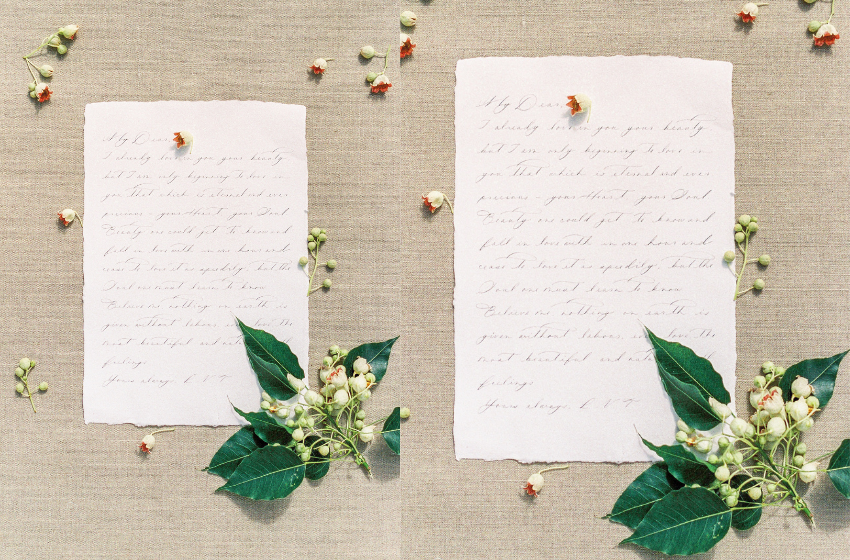 My Dear,
I already love in you your beauty
but I am only beginning to love in
you that which is eternal and ever
precious - your Heart, your Soul
Beauty one could get to know and
fall in love with in one hour and
cease to love it as speedily, but the
Soul one must learn to know
Believe me, nothing on earth is
given without labour, love, the
most beautiful and nat
feelings
Yours always, L V T
My Dear,
I already love in you your beauty
but I am only beginning to love in
you that which is eternal and ever
precious - your Heart, your Soul
Beauty one could get to know and
fall in love with in one hour and
cease to love it as speedily, but the
Soul one must learn to know
Believe me, nothing on earth is
given without labour, love, the
most beautiful and nat
feelings
Yours always, L V T